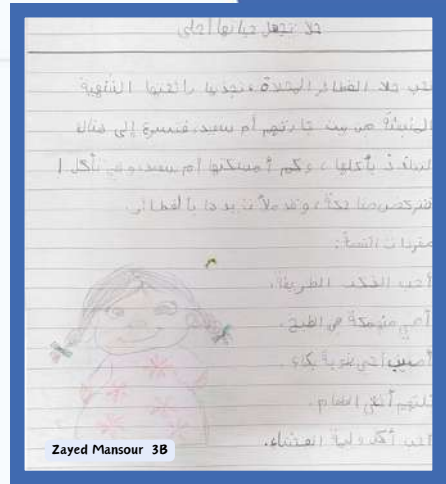 حلا تجعل حياتها أحلى
تحب حلا الفطائر المحلاة، تجذبها رائحتها الشهية
المنبعثة من بيت جارتهم أم سعيد، فتسرع إلى هناك
بأكلها، وكم أمسكتها أم سعيد، وهي تأكل!
فتركض ضاحكة، وقد ملأت يدها بالفطائر.
مفردات القصة:
أحب الفكهة الطريفة.
أمي منهمكة في الطبخ.
أصيب أخي بنوبة بكاء.
تلتهم أختي الطعام.
أحب أكل وليمة العشاء.
Zayed Mansour 3B